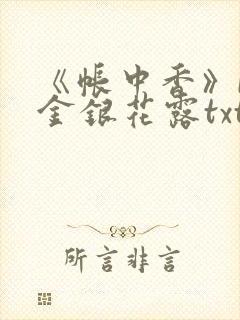 《帐中香》
金银花露txt
所言非言